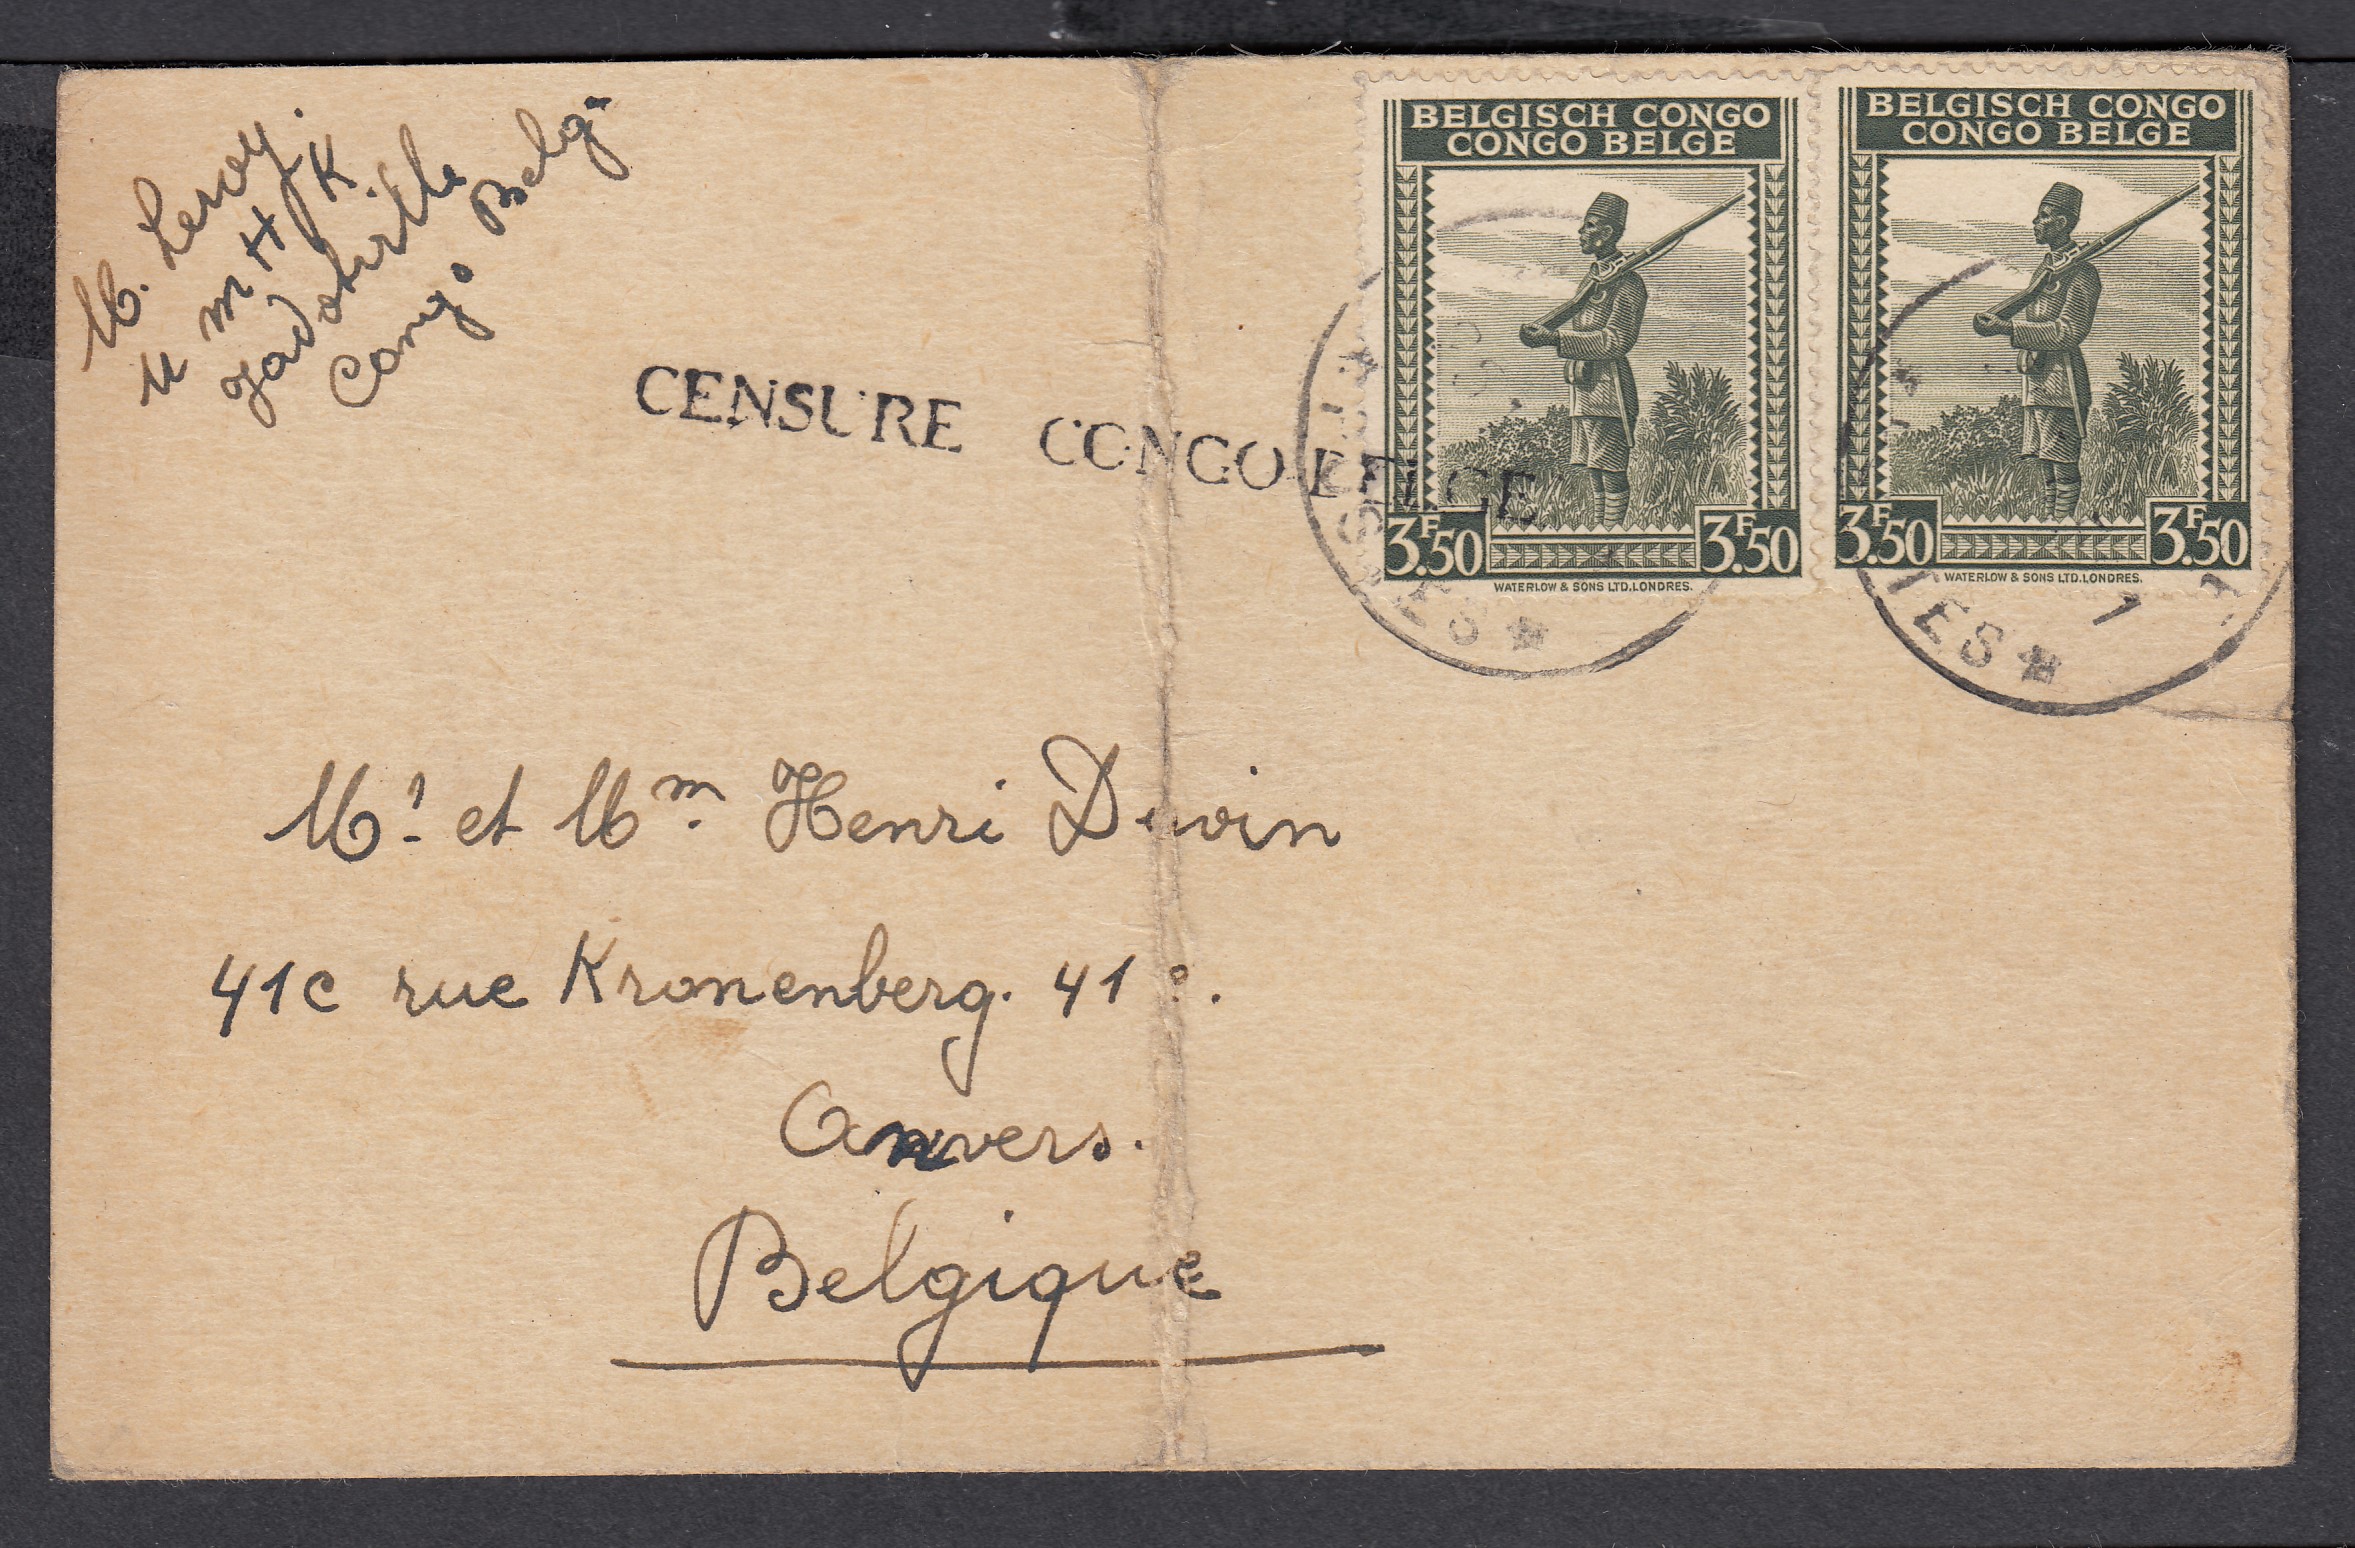 M. Leroy.
U M H K.
Jadotville
Congo Belg.
CENSURE CONGO BELGE
BELGISCH CONGO
CONGO BELGE
3F.50 3F.50
WATERLOW & SONS LTD. LONDRES.
BELGISCH CONGO
CONGO BELGE
3F.50 3F.50
WATERLOW & SONS LTD. LONDRES.
Mr et Mm. Henri Duvin
41c rue Kronenberg. 41c.
Anvers.
Belgique